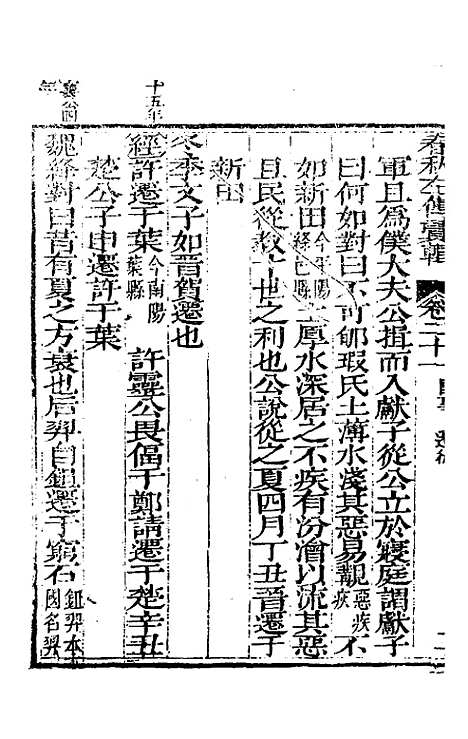 春秋左傳 卷二十一
軍且爲僕大夫公揖而入獻子從公立於寢庭謂獻子
曰何如對曰不可郇瑕氏土薄水淺其惡易覯惡疾疾不
如新田今平陽絳邑縣土厚水深居之不疾有汾澮以流其惡
且民從教十世之利也公說從之夏四月丁丑晉遷于
新田
冬季文子如晉賀遷也
十五年
經許遷于葉今南陽葉縣 許靈公畏偪于鄭請遷于楚辛丑
楚公子申遷許于葉
襄公四年
魏絳對曰昔有夏之方衰也后羿自鉏遷于窮石鉏羿本國名羿